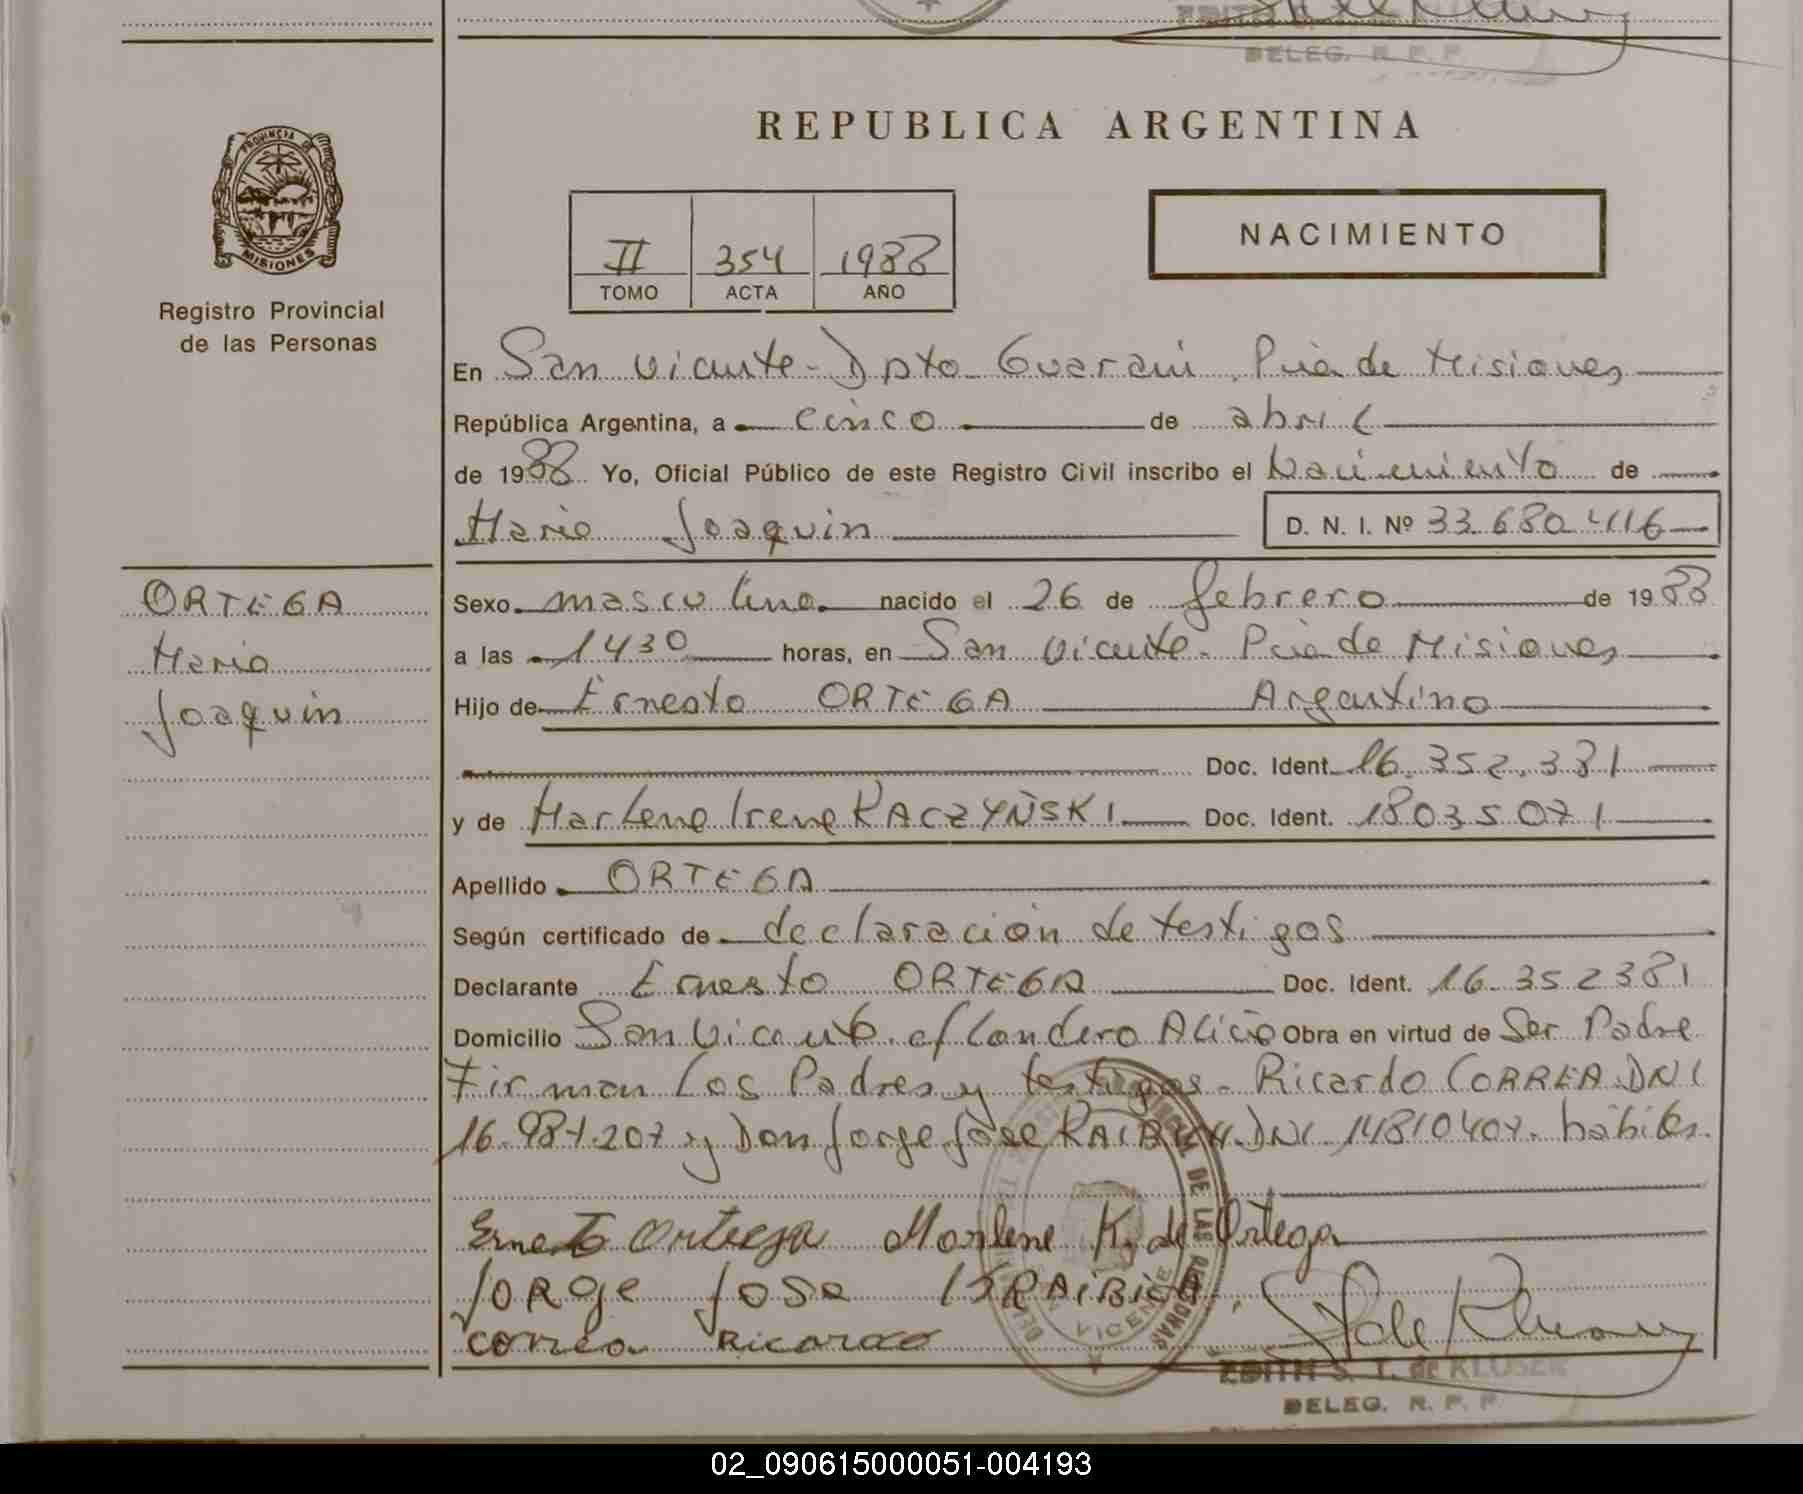 BELEG. R. P. P.
REPUBLICA ARGENTINA
PROVINCIA DE
MISIONES
Registro Provincial
de las Personas
II 354 1988
TOMO ACTA AÑO
NACIMIENTO
En San Vicente - Dpto Guarani Pcia de Misiones
República Argentina, a cinco de abril
de 1988 Yo, Oficial Público de este Registro Civil inscribo el Nacimiento de
Mario Joaquin D. N. I. Nº 33.680.416
ORTEGA
Mario
Joaquin
Sexo masculino nacido el 26 de febrero de 1988
a las 1430 horas, en San Vicente - Pcia de Misiones
Hijo de Ernesto ORTEGA Argentino
Doc. Ident. 16.352.381
y de Marlene Irene RACZYÑSKI Doc. Ident. 18035071
Apellido ORTEGA
Según certificado de declaración de testigos
Declarante Ernesto ORTEGA Doc. Ident. 16.352381
Domicilio San Vicente Alicia Obra en virtud de Ser Padre
Firman los Padres y testigos - Ricardo CORREA DNI
16.981.207 y Don Jorge José DNI 14810407. hábiles.
Ernesto Ortega Marlene K. de Ortega
JORGE JOSE
Correa Ricardo
EDITH S. T. de KLUSER
DELEG. R. P. P.
02_090615000051-004193